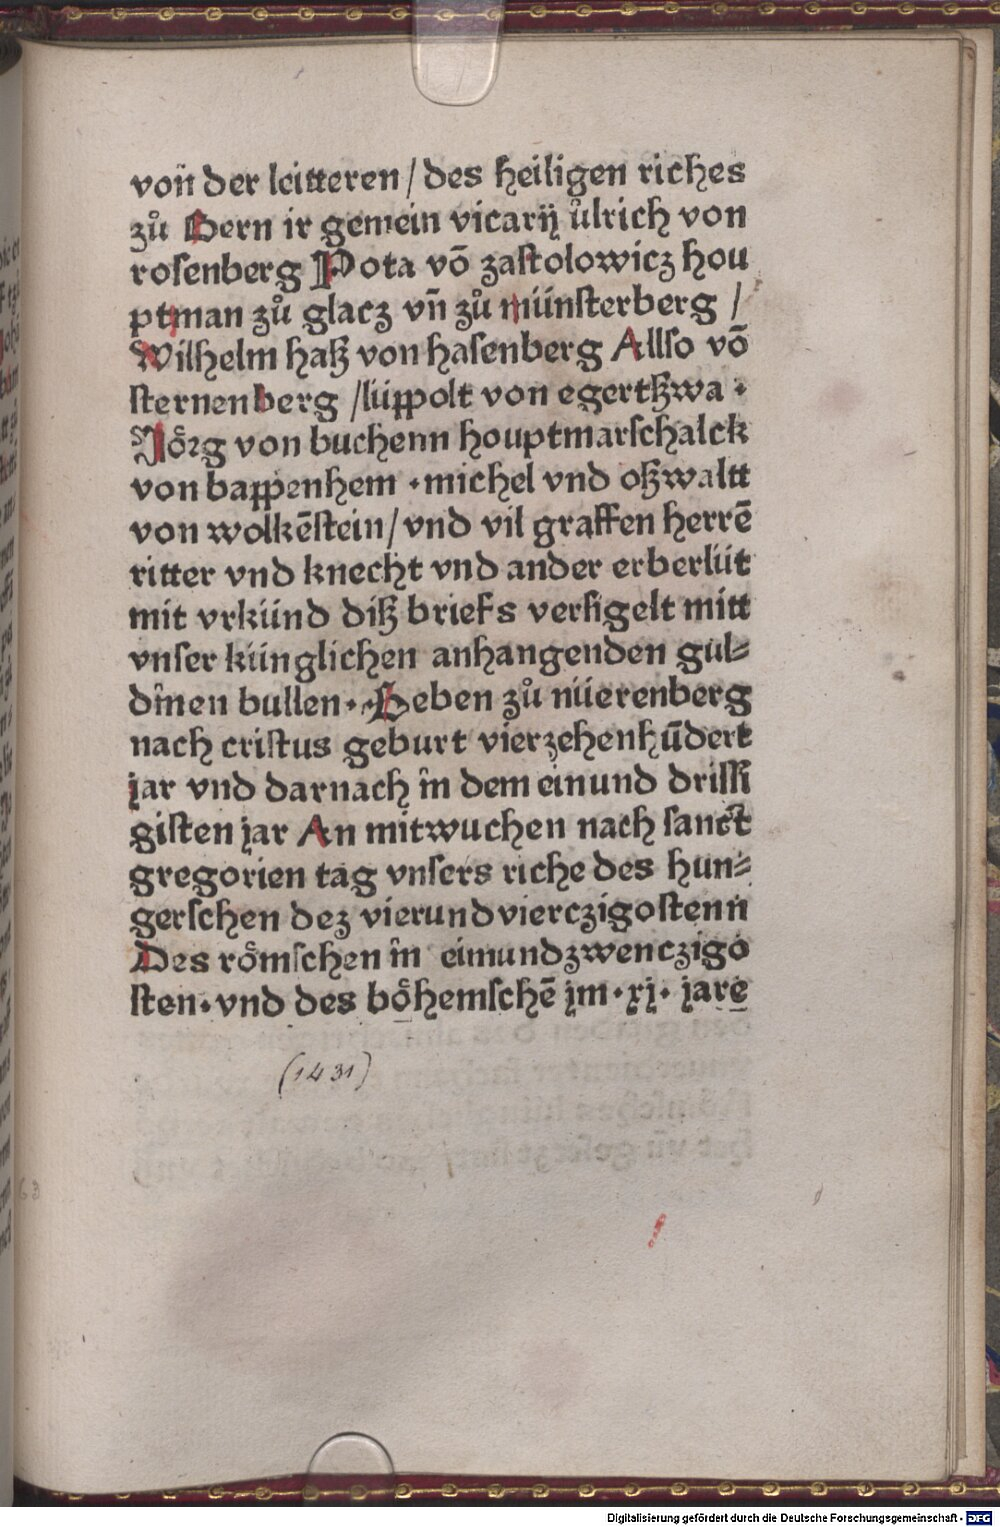 von̄ der leitteren / des heiligen riches
zů Bern ir gemein vicarij ůlrich von
rosenberg Pota vō zastolowicz hou
ptman zů glacz vn̄ zů münsterberg /
Wilhelm haß von hasenberg Allso vō
sternenberg / lüppolt von egertßwa ·
Jo᷎rg von buchenn houptmarschalck
von bappenhem · michel vnd oßwaltt
von wolkēstein / vnd vil graffen herrē
ritter vnd knecht vnd ander erberlüt
mit vrkünd diß briefs versigelt mitt
vnser künglichen anhangenden gul⸗
dīnen bullen · Geben zů nüerenberg
nach cristus geburt vierzehenhūdert
jar vnd darnach în dem einund drissi
gisten jar An mitwuchen nach sanct
gregorien tag vnsers riche des hun⸗
gerschen dez vierundvierczigostenn
Des römschen în einundzwenczigo
sten · vnd des böhemschē jm · xj · jare
(1431)
Digitalisierung gefördert durch die Deutsche Forschungsgemeinschaft - DFG